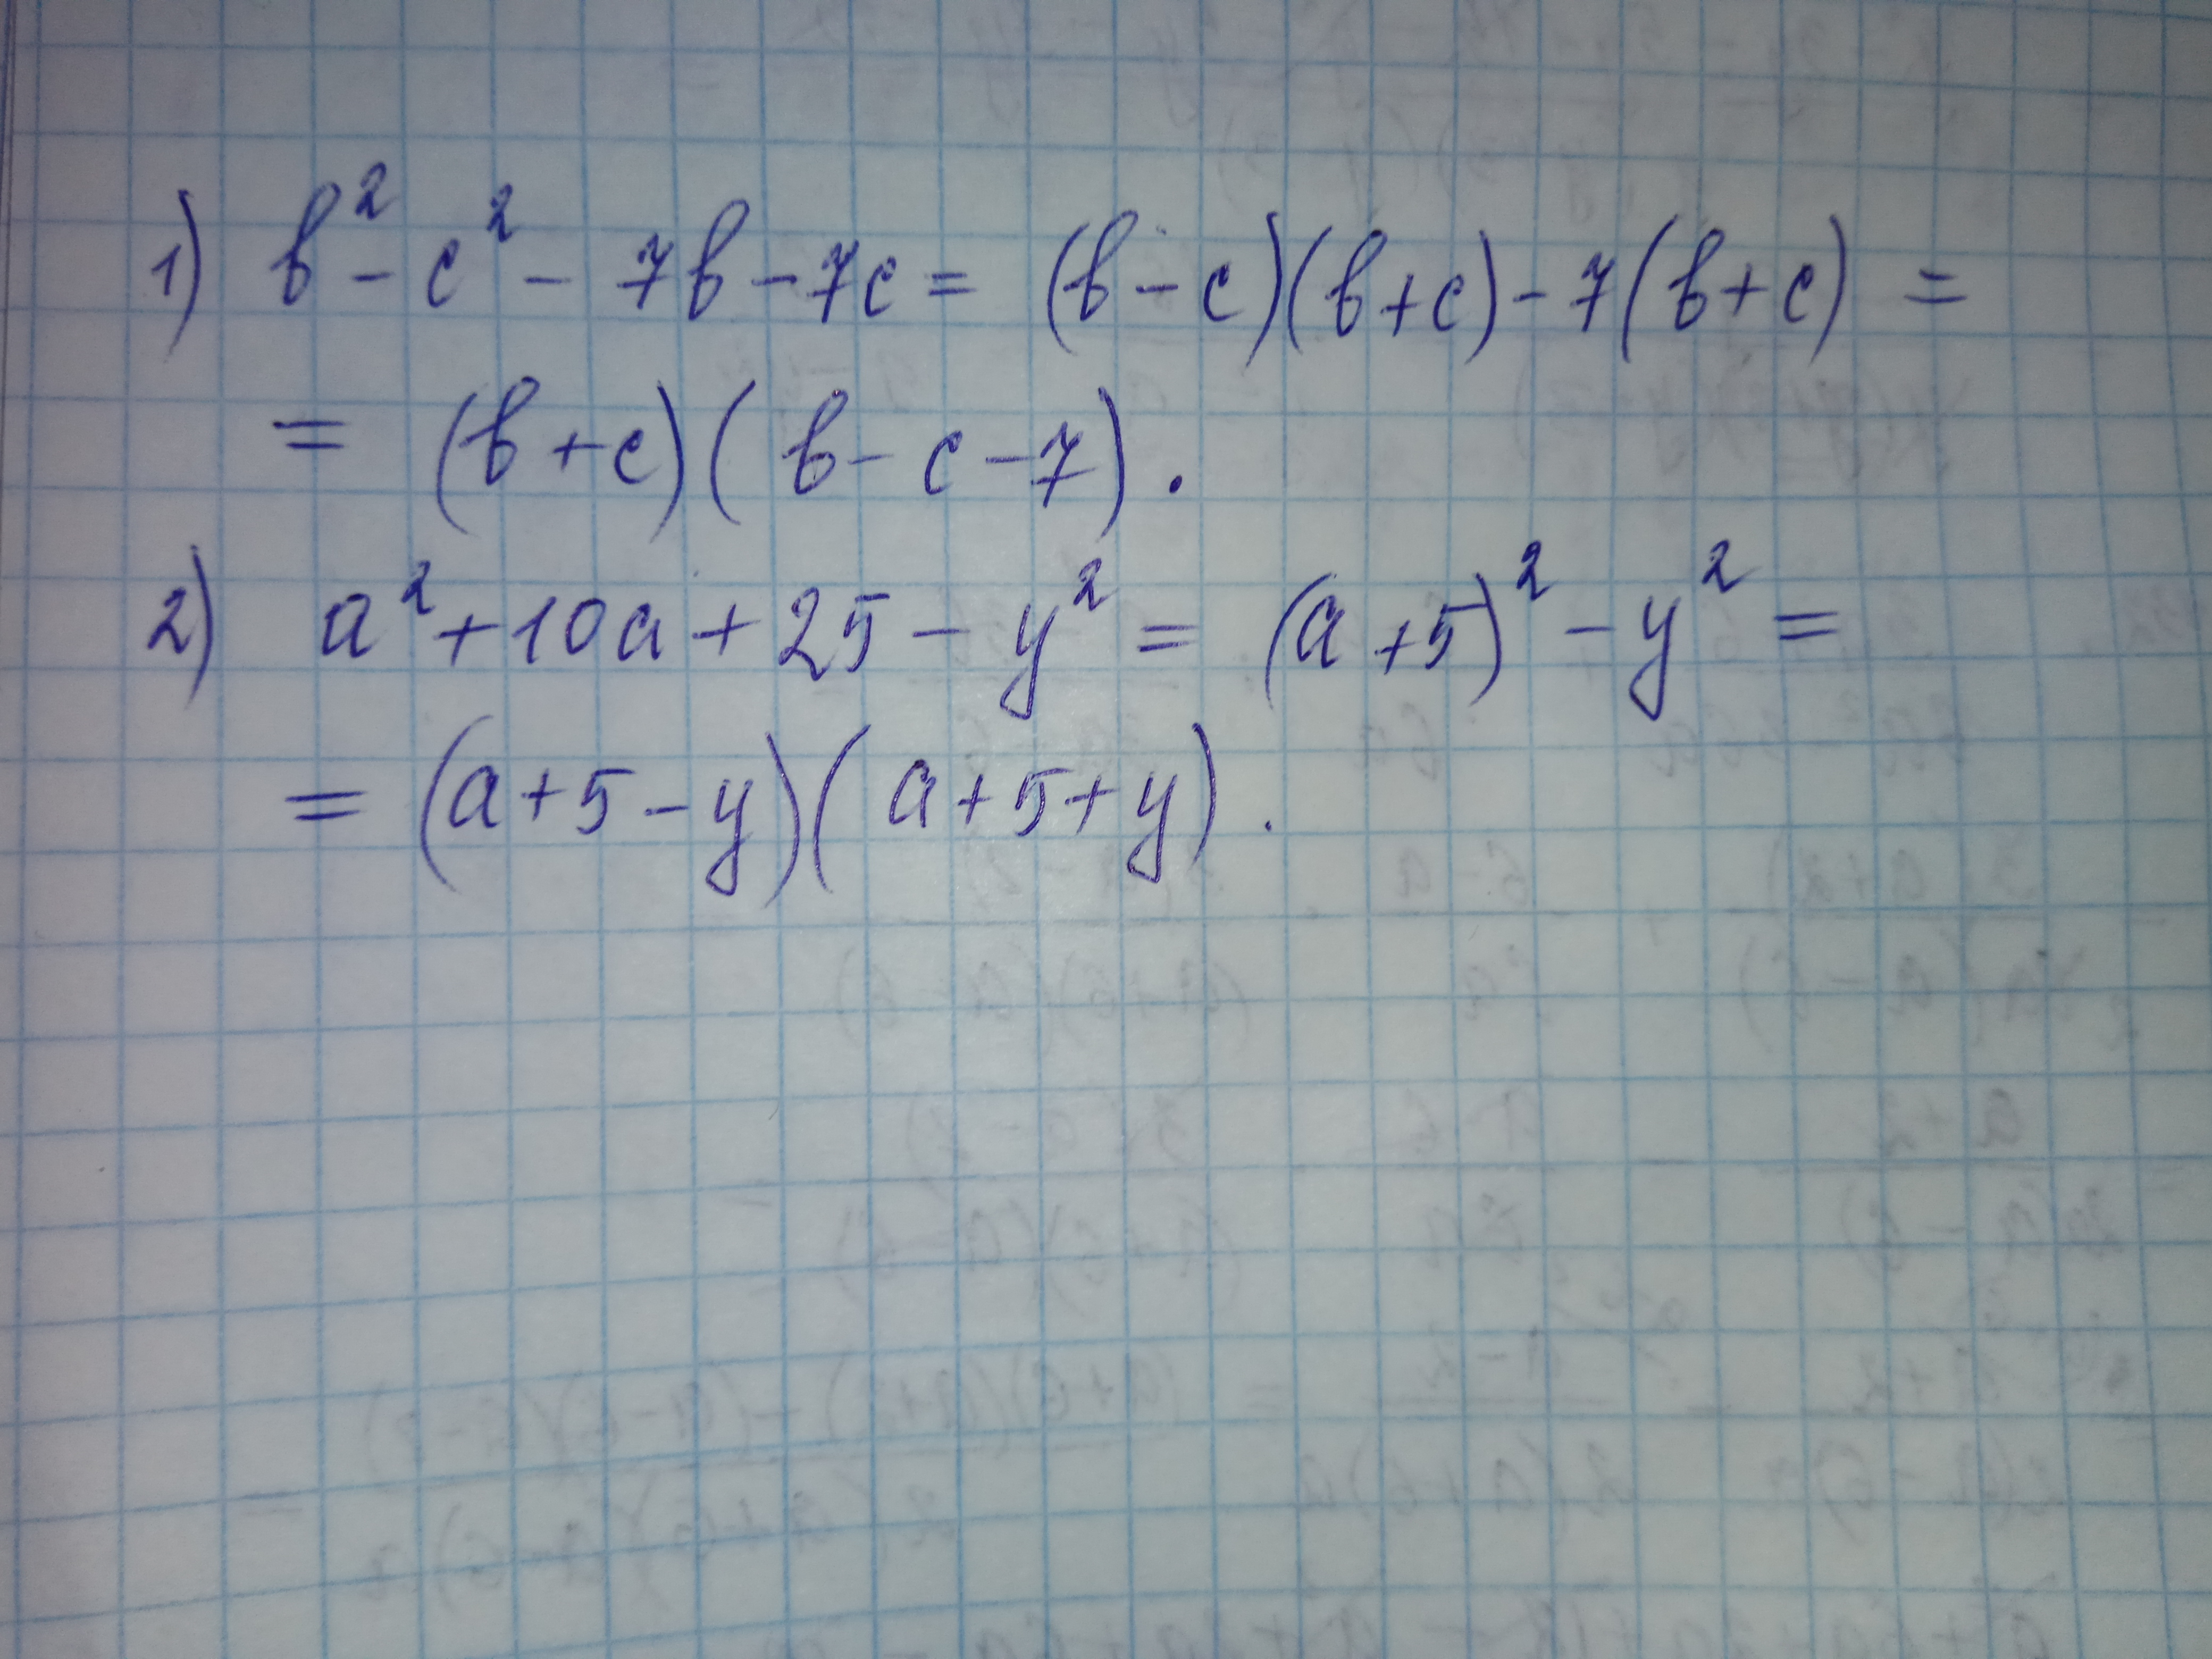 1) b² - c² - 7b - 7c = (b - c)(b + c) - 7(b + c) =
= (b + c)(b - c - 7).
2) a² + 10a + 25 - y² = (a + 5)² - y² =
= (a + 5 - y)(a + 5 + y).